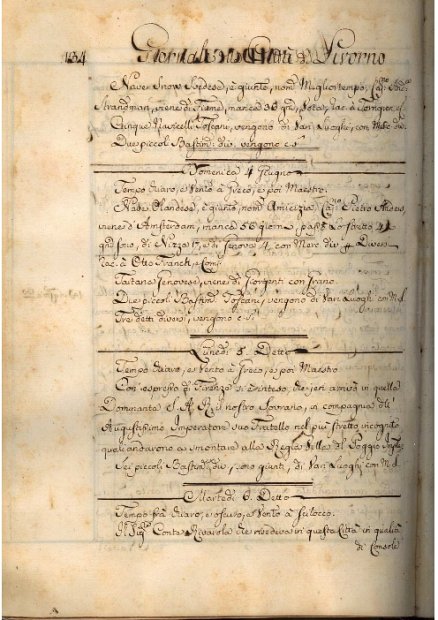 134 Giornale di Livorno
Nave Snow Svedese, è giunto, nom.º Miglior tempo, Cap.no
Strandman, viene di Fiume, manca 36 gni
Cinque Navicelli Toscani, vengono di Vari Luoghi, con Merc. div.
Due piccoli Bastim.ti div. vengono c.s.
Domenica 4 Giugno
Tempo chiaro, e Vento à Greco, e poi Maestro.
Nave Olandese, è giunta, nom.ª Amicizia, Cap. Pietro
viene d'Amsterdam, manca 56 giorni, passò Lo stretto 21
gni sono, di Nizza 17, e di Genova 4, con Merc. div. à Diversi
rac. à Otto Franck, e Comp.
Tartana Genovese, viene di con Grano
Due piccoli Bastim.ti Toscani, vengono di Vari Luoghi con M. d.
Tre detti diversi, vengono c.s.
Lunedi 5. Detto
Tempo chiaro, e Vento à Greco, e poi Maestro
Con espresso di Firenze si è inteso, che jeri arrivò in quella
Dominante S. A. R. il nostro Sovrano, in compagnia dell'
Augustissimo Imperatore suo Fratello nel più stretto incognito
quali andarono à smontare alla Regia Villa del Poggio Imp.le
Sei piccoli Bastim.ti div. sono giunti, di Vari Luoghi con M. d.
Martedi 6. Detto
Tempo frà chiaro, e oscuro, e Vento à Scilocco.
Il Sig.r Conte Rivarola che risedeva in questa Città in qualità
di Console